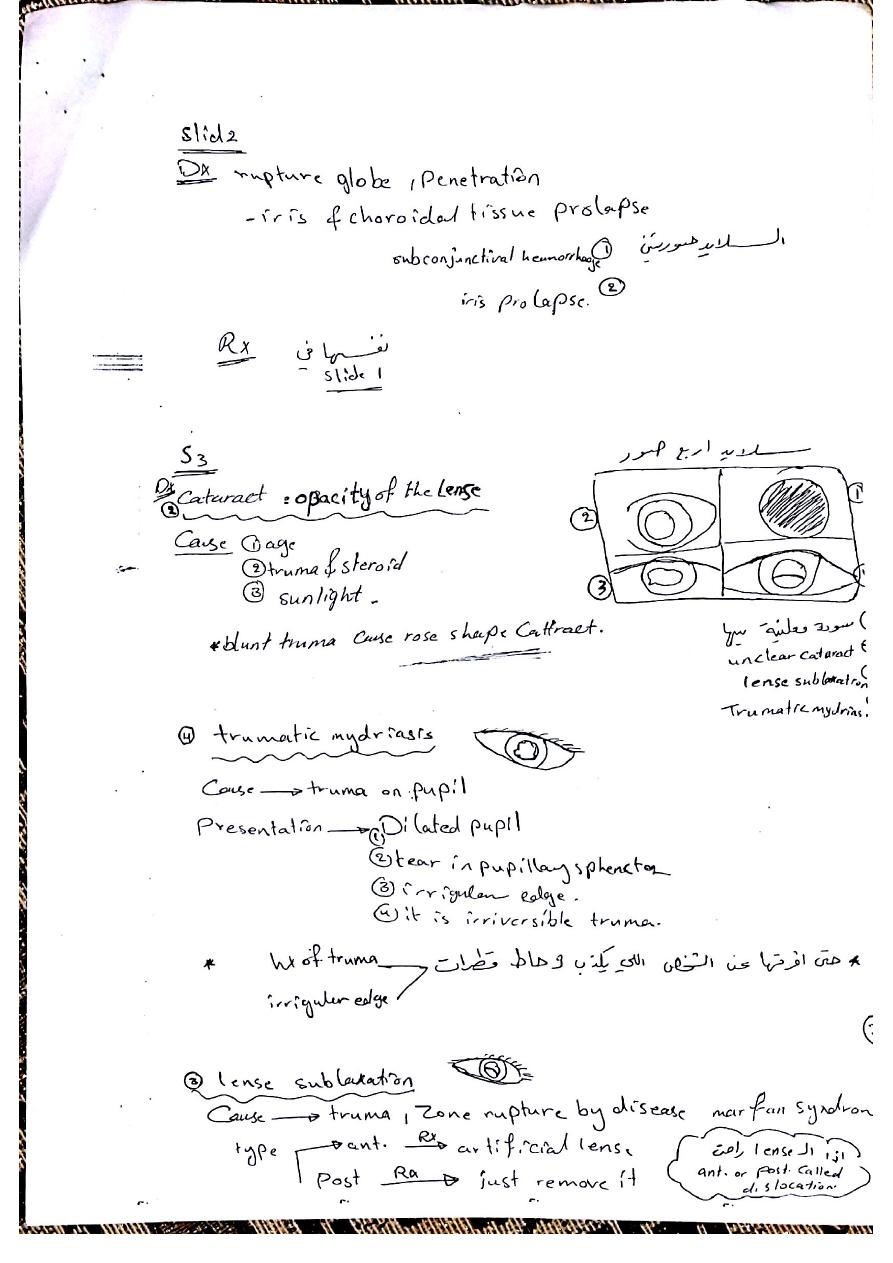 Slid2
Dx rupture globe , Penetration
- iris & choroidal tissue prolapse
السلايد صورتين
subconjunctival hemorrhage ①
iris prolapse. ②
Rx نفسها في
slide 1
S3
سلايد اربع صور
Dx Cataract : opacity of the lense
②
Cause ① age
② truma & steroid
③ sunlight .
* blunt truma cause rose shape Cattract.
①
②
③
صورة
unclear cataract
lense sublaxation
Trumatic mydrias
④ trumatic mydriasis
Cause → truma on pupil
Presentation → ① Dilated pupil
② tear in pupillay sphencter
③ irrigular edge .
④ it is irriversible truma.
* حتى افرقها عن الشخص اللي يكذب وحاط قطرات
* hx of truma
irrigular edge
③ lense sublaxation
Cause → truma , Zone rupture by disease marfan syndron
type → ant. Rx → artificial lense
Post Rx → just remove it
اذا الـ lense راحت
ant. or post. called
dislocation